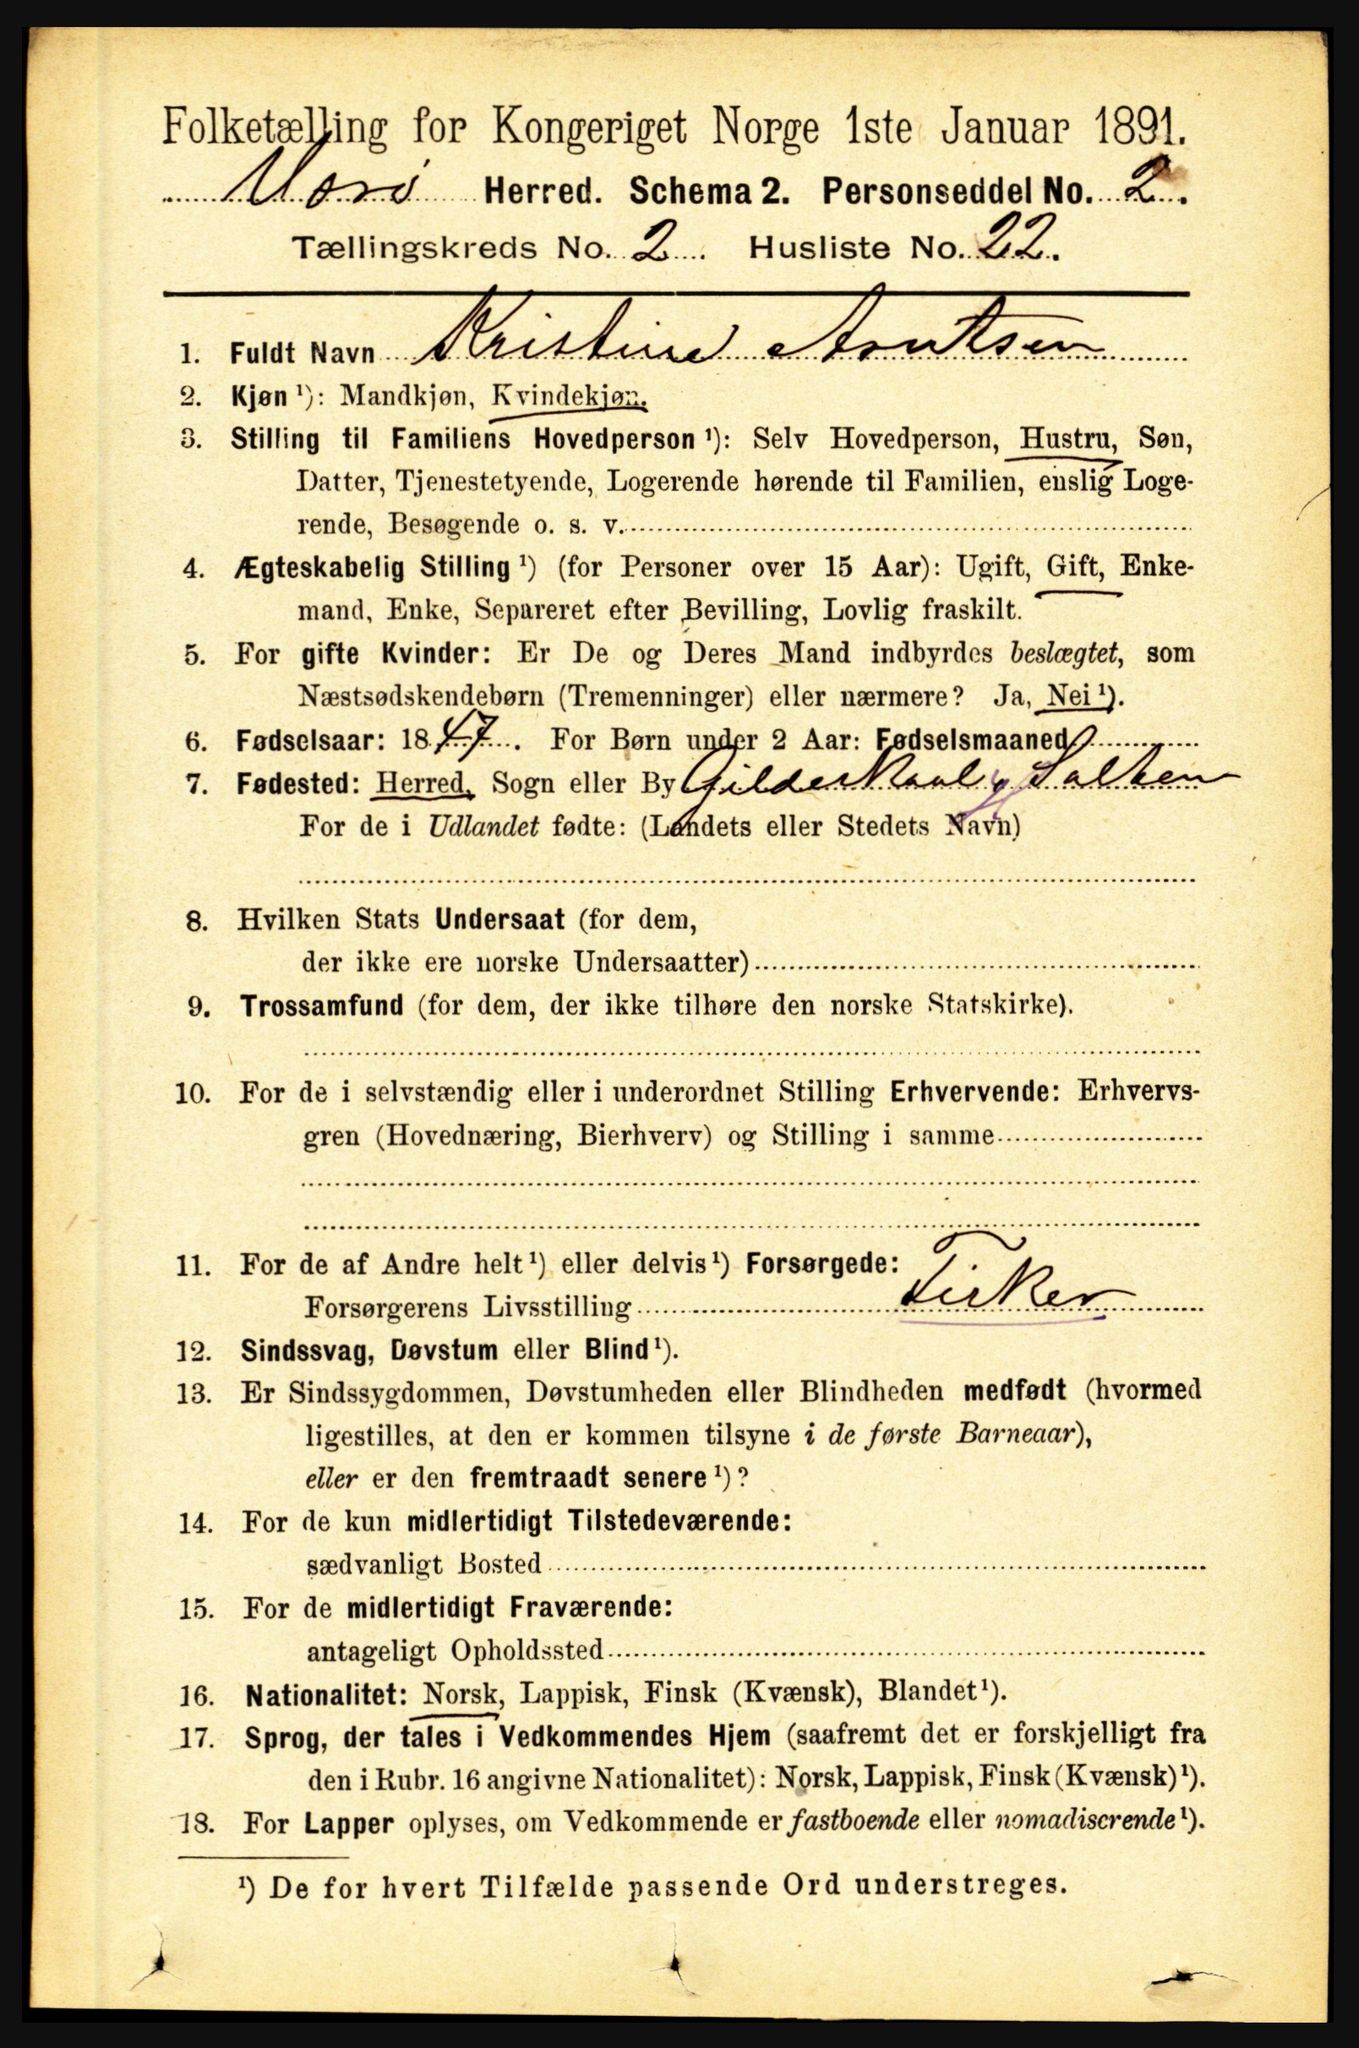 Folketælling for Kongeriget Norge 1ste Januar 1891.
Værø Herred. Schema 2. Personseddel No. 2.
Tællingskreds No. 2. Husliste No. 22.
1. Fuldt Navn Kristine Arntsen
2. Kjøn ¹): Mandkjøn, Kvindekjøn.
3. Stilling til Familiens Hovedperson ¹): Selv Hovedperson, Hustru, Søn,
Datter, Tjenestetyende, Logerende hørende til Familien, enslig Loge-
rende, Besøgende o. s. v.
4. Ægteskabelig Stilling ¹) (for Personer over 15 Aar): Ugift, Gift, Enke-
mand, Enke, Separeret efter Bevilling, Lovlig fraskilt.
5. For gifte Kvinder: Er De og Deres Mand indbyrdes beslægtet, som
Næstsødskendebørn (Tremenninger) eller nærmere? Ja, Nei ¹).
6. Fødselsaar: 1847. For Børn under 2 Aar: Fødselsmaaned
7. Fødested: Herred, Sogn eller By Gildeskaal, Salten
For de i Udlandet fødte: (Landets eller Stedets Navn)
8. Hvilken Stats Undersaat (for dem,
der ikke ere norske Undersaatter)
9. Trossamfund (for dem, der ikke tilhøre den norske Statskirke).
10. For de i selvstændig eller i underordnet Stilling Erhvervende: Erhvervs-
gren (Hovednæring, Bierhverv) og Stilling i samme
11. For de af Andre helt ¹) eller delvis ¹) Forsørgede:
Forsørgerens Livsstilling Fisker
12. Sindssvag, Døvstum eller Blind ¹).
13. Er Sindssygdommen, Døvstumheden eller Blindheden medfødt (hvormed
ligestilles, at den er kommen tilsyne i de første Barneaar),
eller er den fremtraadt senere ¹)?
14. For de kun midlertidigt Tilstedeværende:
sædvanligt Bosted
15. For de midlertidigt Fraværende:
antageligt Opholdssted
16. Nationalitet: Norsk, Lappisk, Finsk (Kvænsk), Blandet ¹).
17. Sprog, der tales i Vedkommendes Hjem (saafremt det er forskjelligt fra
den i Rubr. 16 angivne Nationalitet): Norsk, Lappisk, Finsk (Kvænsk) ¹).
18. For Lapper oplyses, om Vedkommende er fastboende eller nomadiserende ¹).
¹) De for hvert Tilfælde passende Ord understreges.